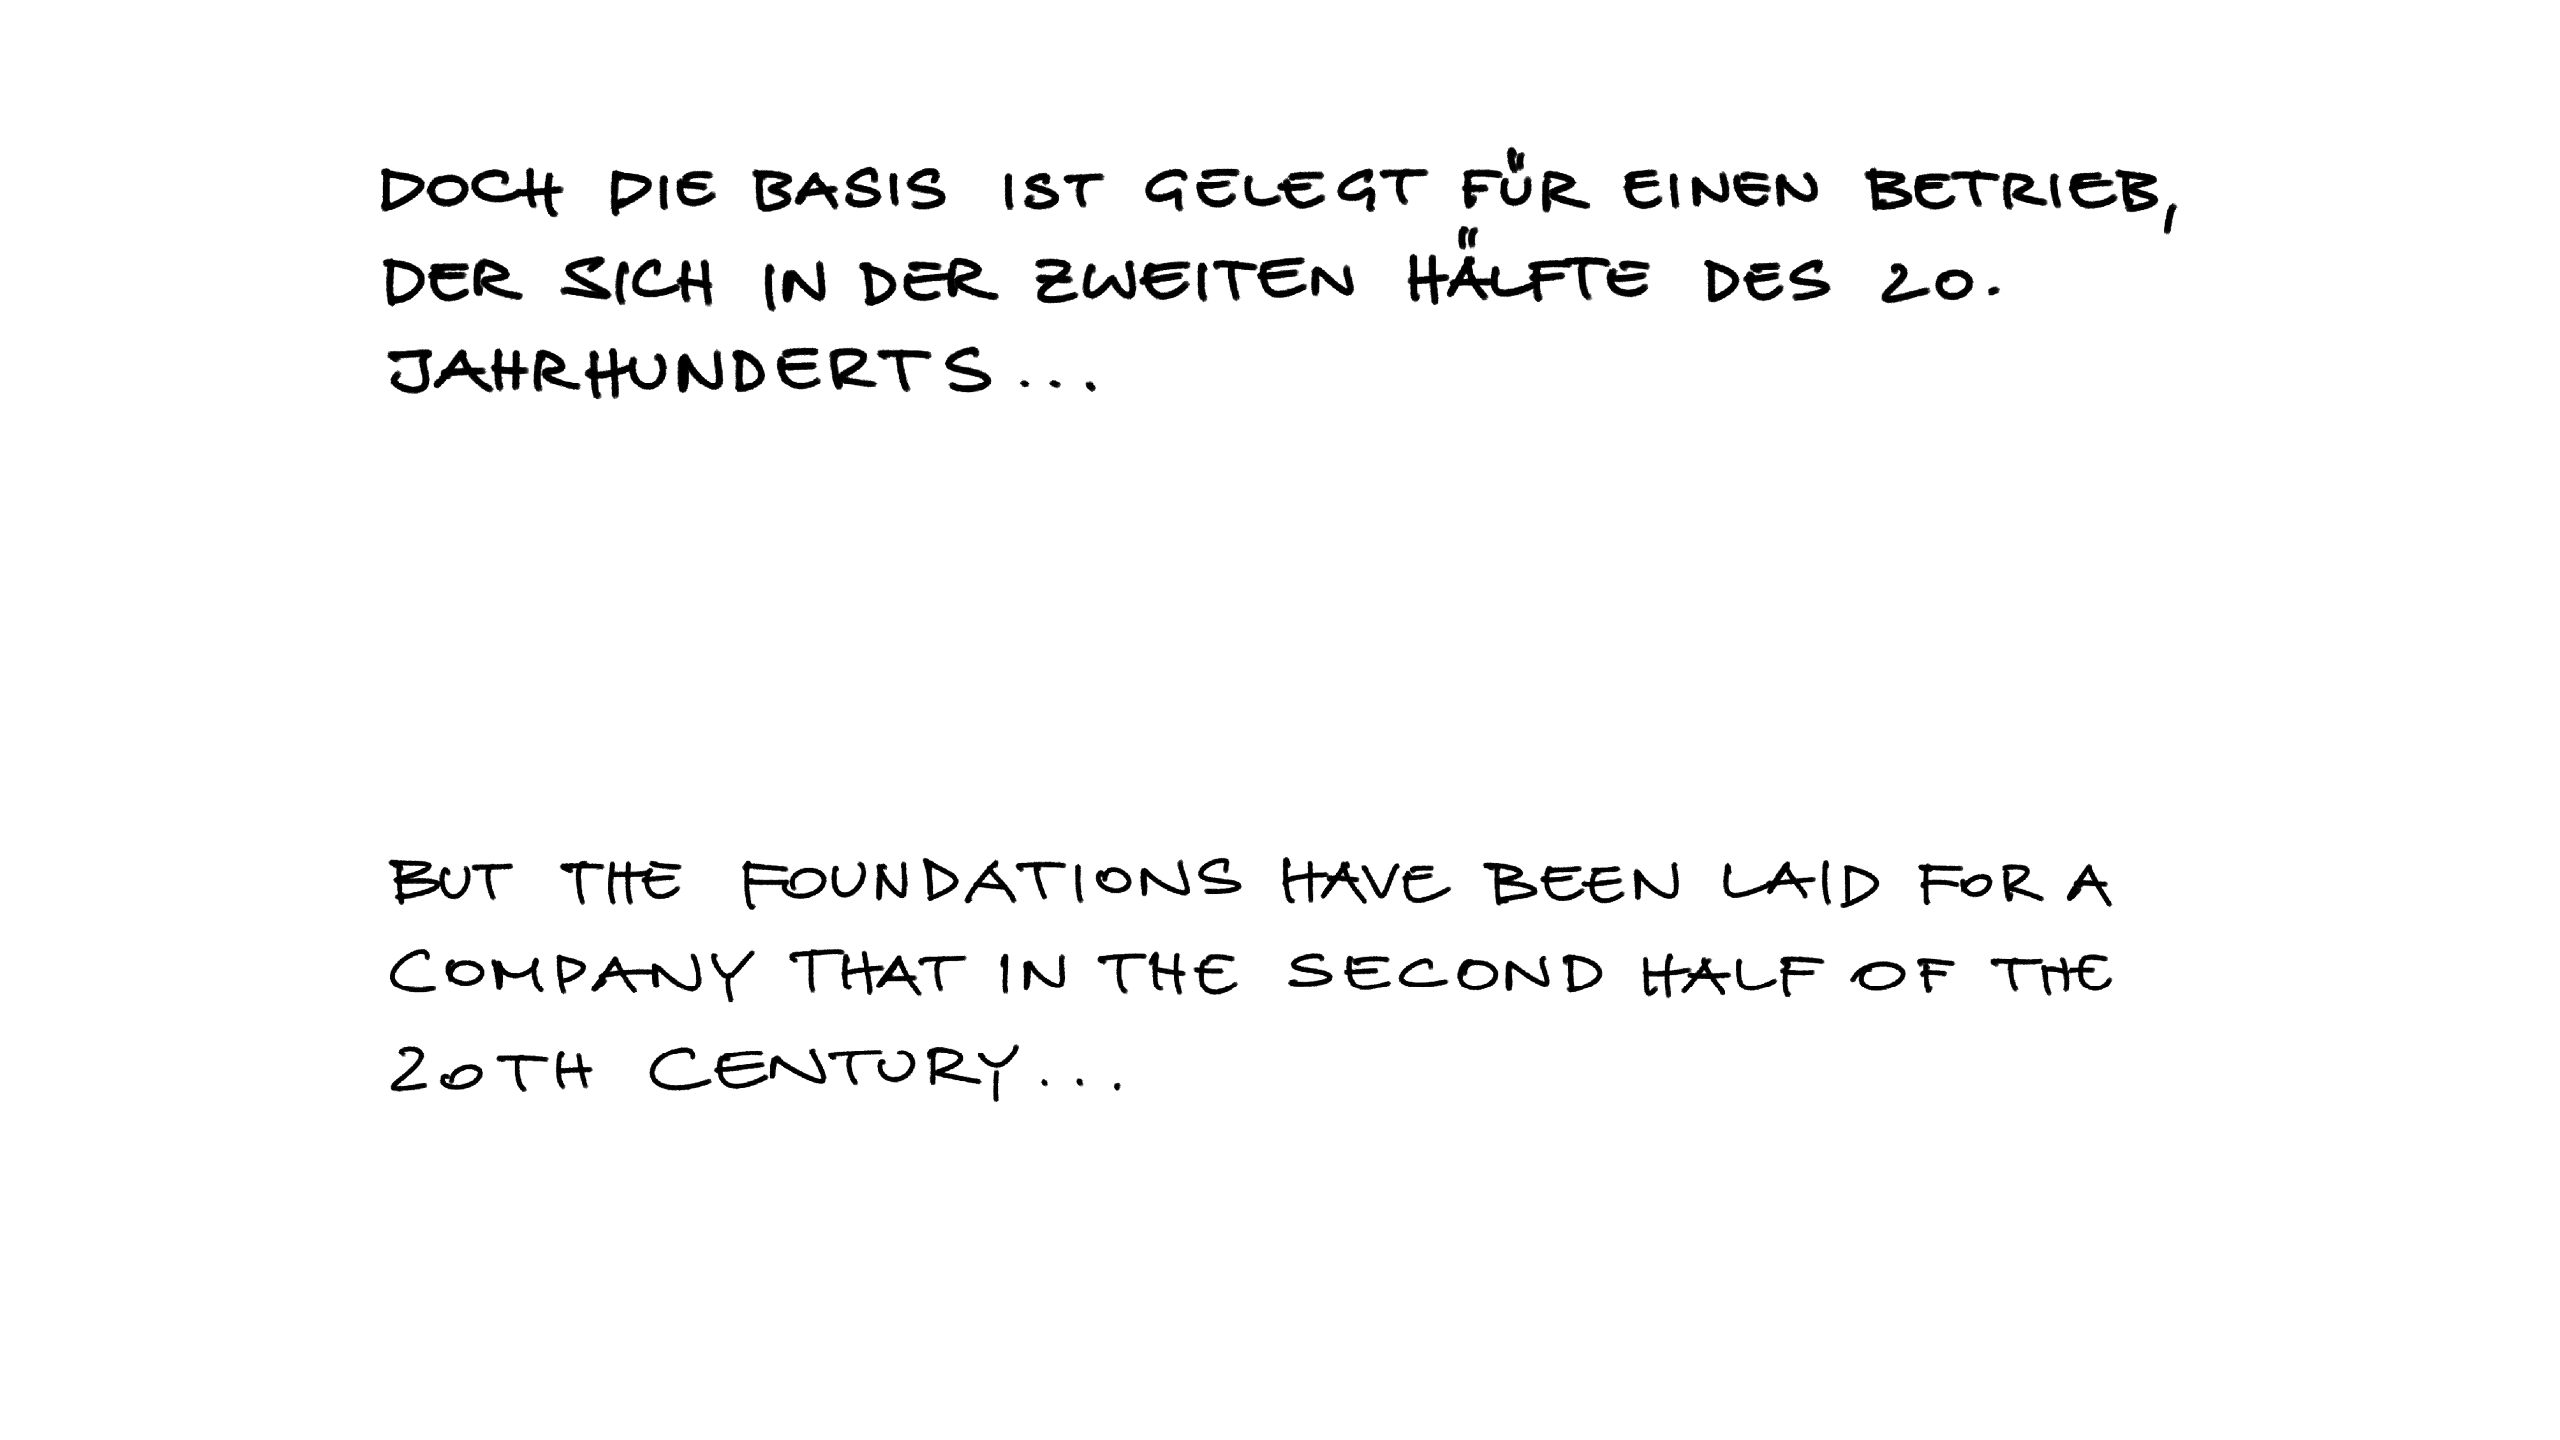 DOCH DIE BASIS IST GELEGT FÜR EINEN BETRIEB,
DER SICH IN DER ZWEITEN HÄLFTE DES 20.
JAHRHUNDERTS...
BUT THE FOUNDATIONS HAVE BEEN LAID FOR A
COMPANY THAT IN THE SECOND HALF OF THE
20TH CENTURY...